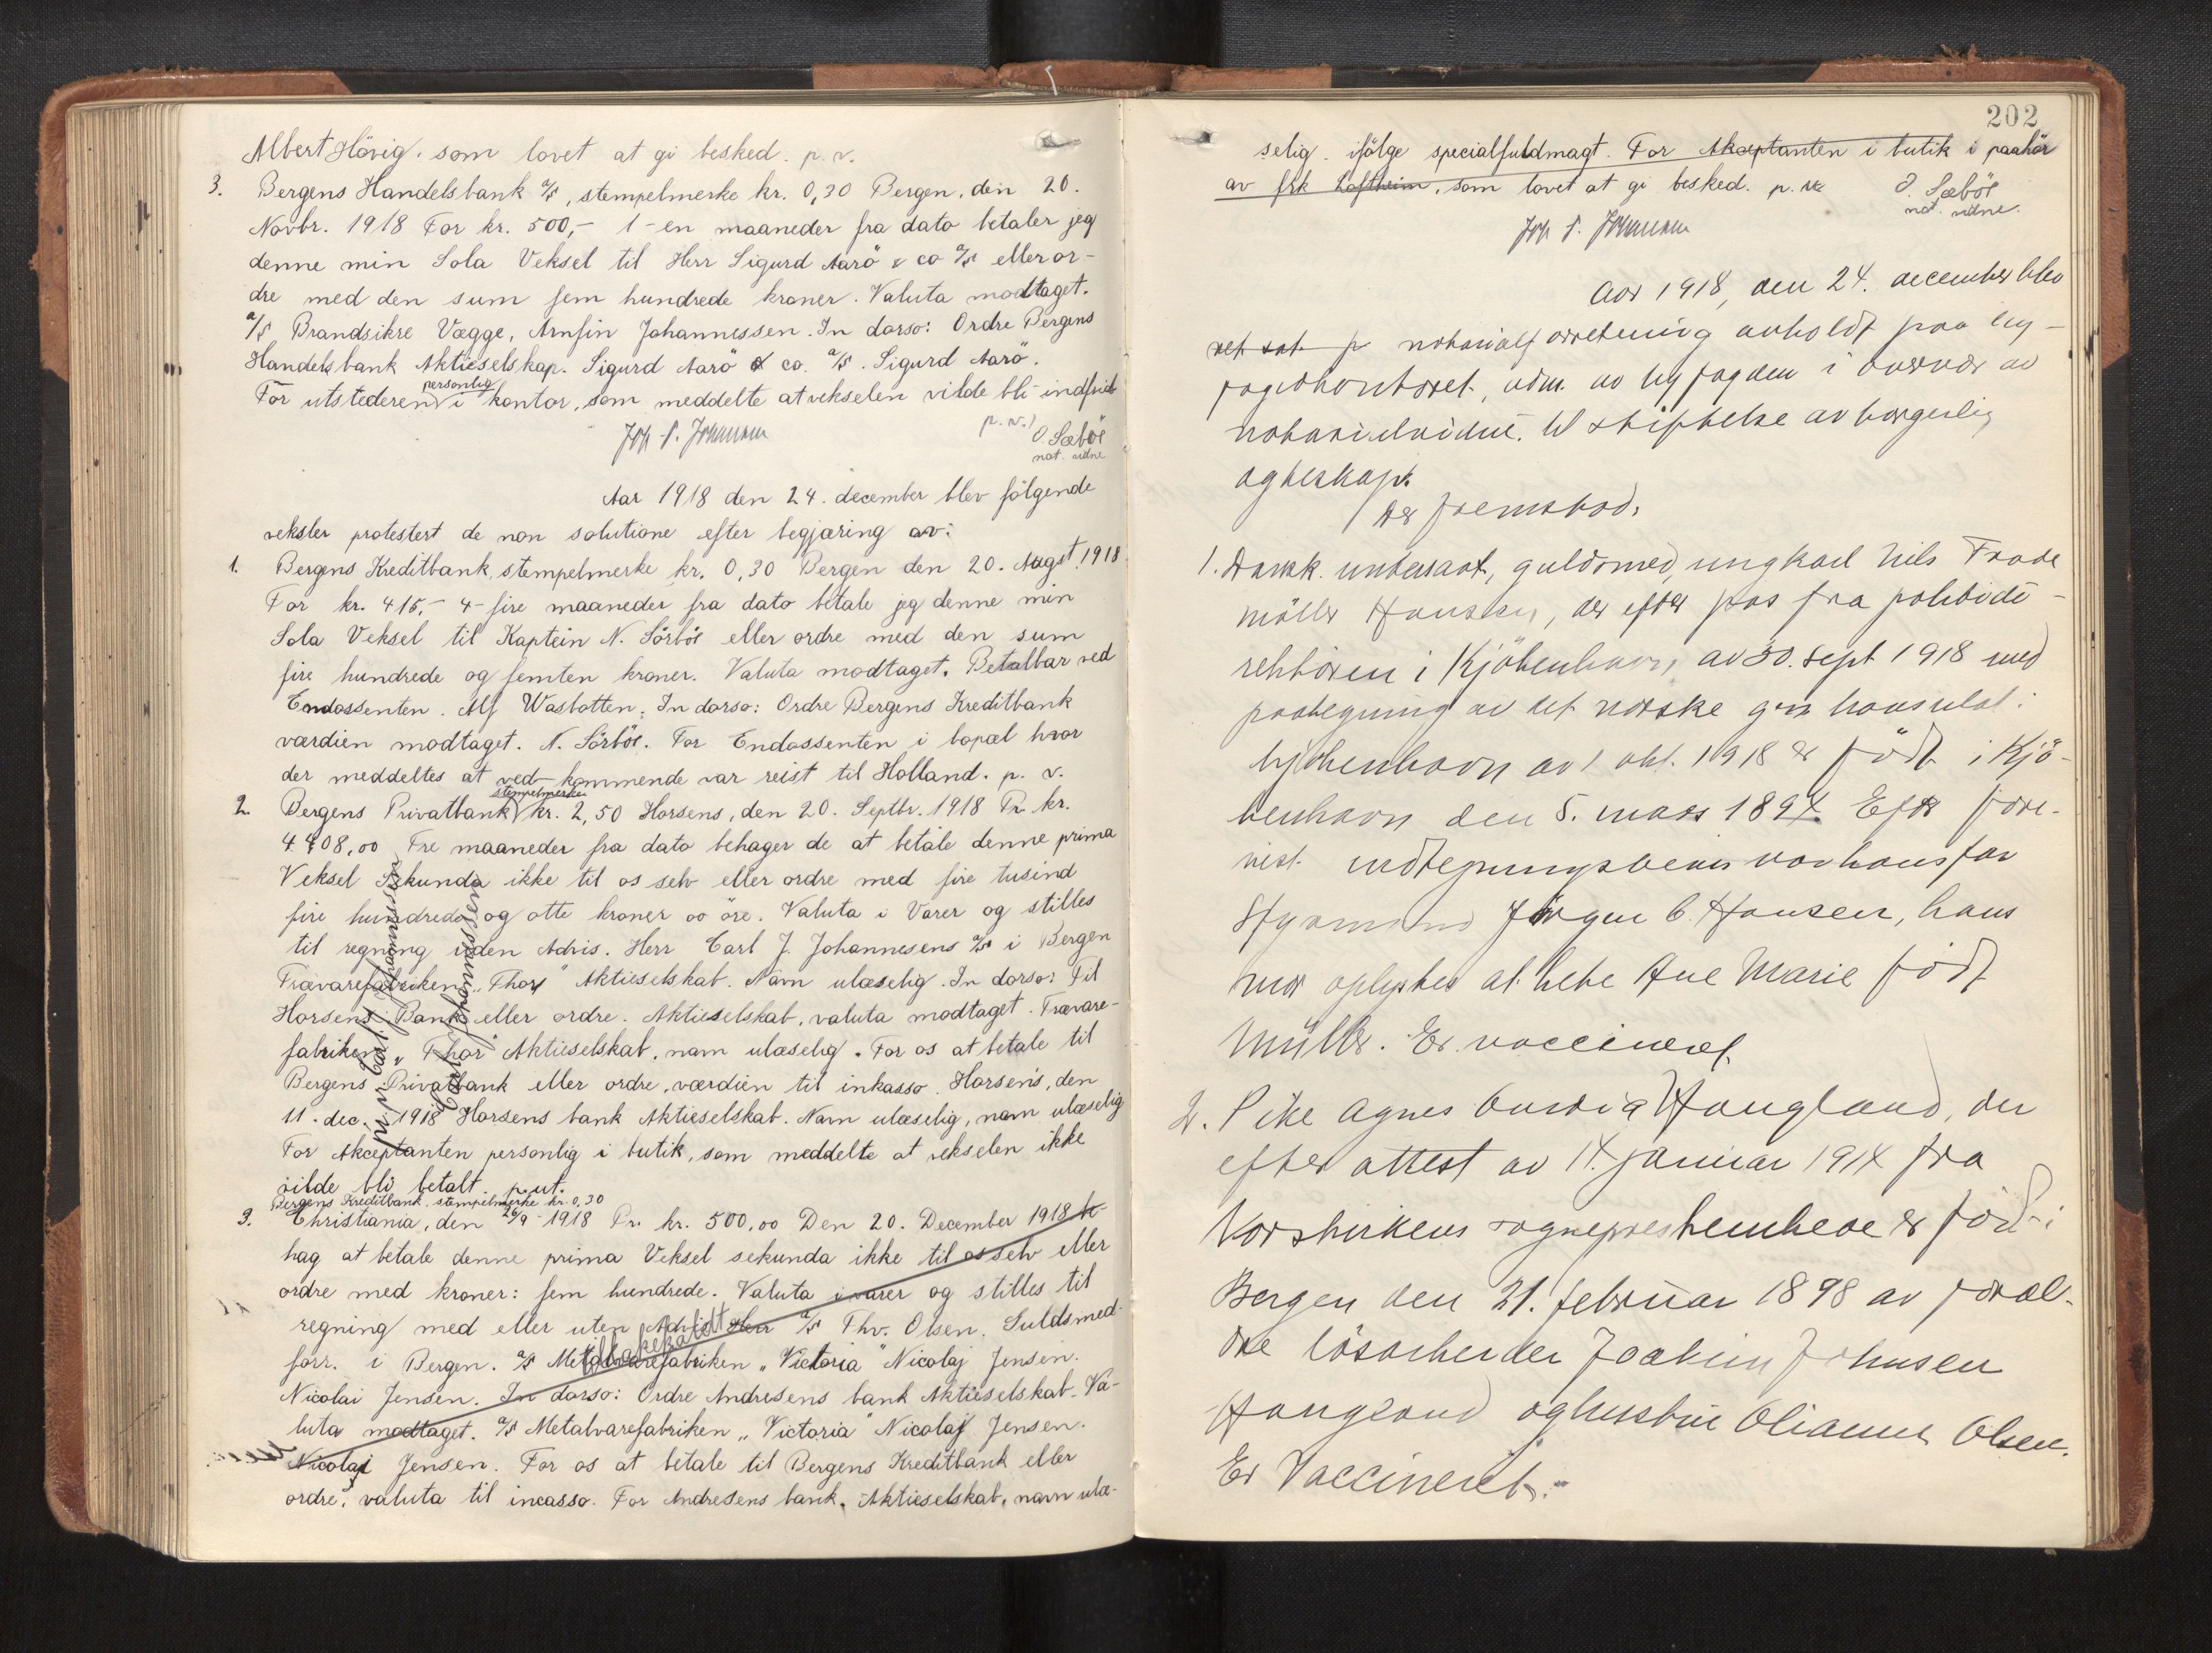 Albert Hövig. som lovet at gi besked. p.v.
3. Bergens Handelsbank a/s, stempelmerke kr. 0,30 Bergen, den 20.
Novbr. 1918 For kr. 500,- 1-en maaneder fra dato betaler jeg
denne min Sola Veksel til Herr Sigurd Aarö & co a/s eller or-
dre med den sum fem hundrede kroner. Valuta modtaget.
a/s Brandsikre Vægge, Arnfin Johannessen. In dorso: Ordre Bergens
Handelsbank Aktieselskap. Sigurd Aarö & co. a/s. Sigurd Aarö.
For utstederen personlig i kontor, som meddelte at vekselen vilde bli indfriet
p.v.
O. Sæböe
not. vidne
Aar 1918 den 24. december blev fölgende
veksler protestert de non solutione efter begjæring av:
1. Bergens Kreditbank, stempelmerke kr. 0,30 Bergen den 20. Augst. 1918
For kr. 415,- 4-fire maaneder fra dato betale jeg denne min
Sola Veksel til Kaptein N. Sörböe eller ordre med den sum
fire hundrede og femten kroner. Valuta modtaget. Betalbar ved
Endossenten. Alf Wasbotten. In dorso: Ordre Bergens Kreditbank
værdien modtaget. N. Sörböe. For Endossenten i bopæl hvor
der meddeltes at ved-kommende var reist til Holland. p. v.
2. Bergens Privatbank stempelmerke kr. 2,50 Horsens, den 20. Septbr. 1918 Pr. kr.
4408,00 Tre maaneder fra dato behager de at betale denne prima
Veksel Sekunda ikke til os selv eller ordre med fire tusind
fire hundrede og otte kroner oo öre. Valuta i Varer og stilles
til regning uden Advis. Herr Carl J. Johannesens a/s i Bergen
Trævarefabriken „Thor" Aktieselskab. Navn ulæselig. In dorso: Til
Horsens Bank eller ordre. Aktieselskab, valuta modtaget. Trævare-
fabriken „Thor" Aktieselskab, navn ulæselig. For os at betale til
Bergens Privatbank eller ordre, værdien til inkasso. Horsens, den
11. dec. 1918 Horsens bank Aktieselskab. Navn ulæselig, navn ulæselig
For Akceptanten personlig i butik, som meddelte at vekselen ikke
vilde bli betalt. p. ut.
pr. pr. Carl J. Johannessen
Carl Johannessen
Bergens Kreditbank. stempelmerke kr. 0,30
3. Christiania, den 26/9 - 1918 Pr. kr. 500,00 Den 20. December 1918 be-
hag at betale denne prima Veksel sekunda ikke til os selv eller
ordre med kroner: fem hundrede. Valuta i varer og stilles til
regning med eller uten Advis Herr a/s Thv. Olsen. Guldsmed-
forr. i Bergen. a/s Metalvarefabriken „Victoria" Nicolaj Jensen.
tilbakekaldt
Nicolai Jensen. In dorso: Ordre Andresens bank Aktieselskab. Va-
luta modtaget. a/s Metalvarefabriken „Victoria" Nicolaj Jensen.
Nicolaj Jensen. For os at betale til Bergens Kreditbank eller
ordre, valuta til incasso. For Andresens bank. Aktieselskab, navn ulæ-
202
selig. ifölge specialfuldmagt. For Akceptanten i butik i paahör
av frk Loftheim, som lovet at gi besked. p. v.
O. Sæböe
not. vidne.
Aar 1918, den 24. december blev
ret sat p notarialforretning avholdt paa by-
fogdkontoret, adm. av byfogden i overvær av
notarialvidne. til stiftelse av borgerlig
egteskap.
Der fremstod:
1. Dansk undersaat, guldsmed, ungkarl Nils Frode
Möller Hansen, der efter pas fra politidi-
rektören i Kjöbenhavn av 30. sept 1918 med
paategning av det norske gen. konsulat i
Kjöbenhavn av 1 okt. 1918 er födt i Kjö-
benhavn den 5. mars 1894. Efter fore-
vist indtegningsbevis var hans far
Styrmand Jörgen C. Hansen, hans
mor oplystes at hete Ane Marie födt
Müller. Er vaccineret.
2. Pike Agnes Haugland, der
efter attest av 14. januar 1914 fra
Korskirkens sogneprestembede er född i
Bergen den 21. februar 1898 av foræl-
dre lösarbeider Joakim Johnsen
Haugland og hustru Olianne Olsen.
Er Vaccineret.-